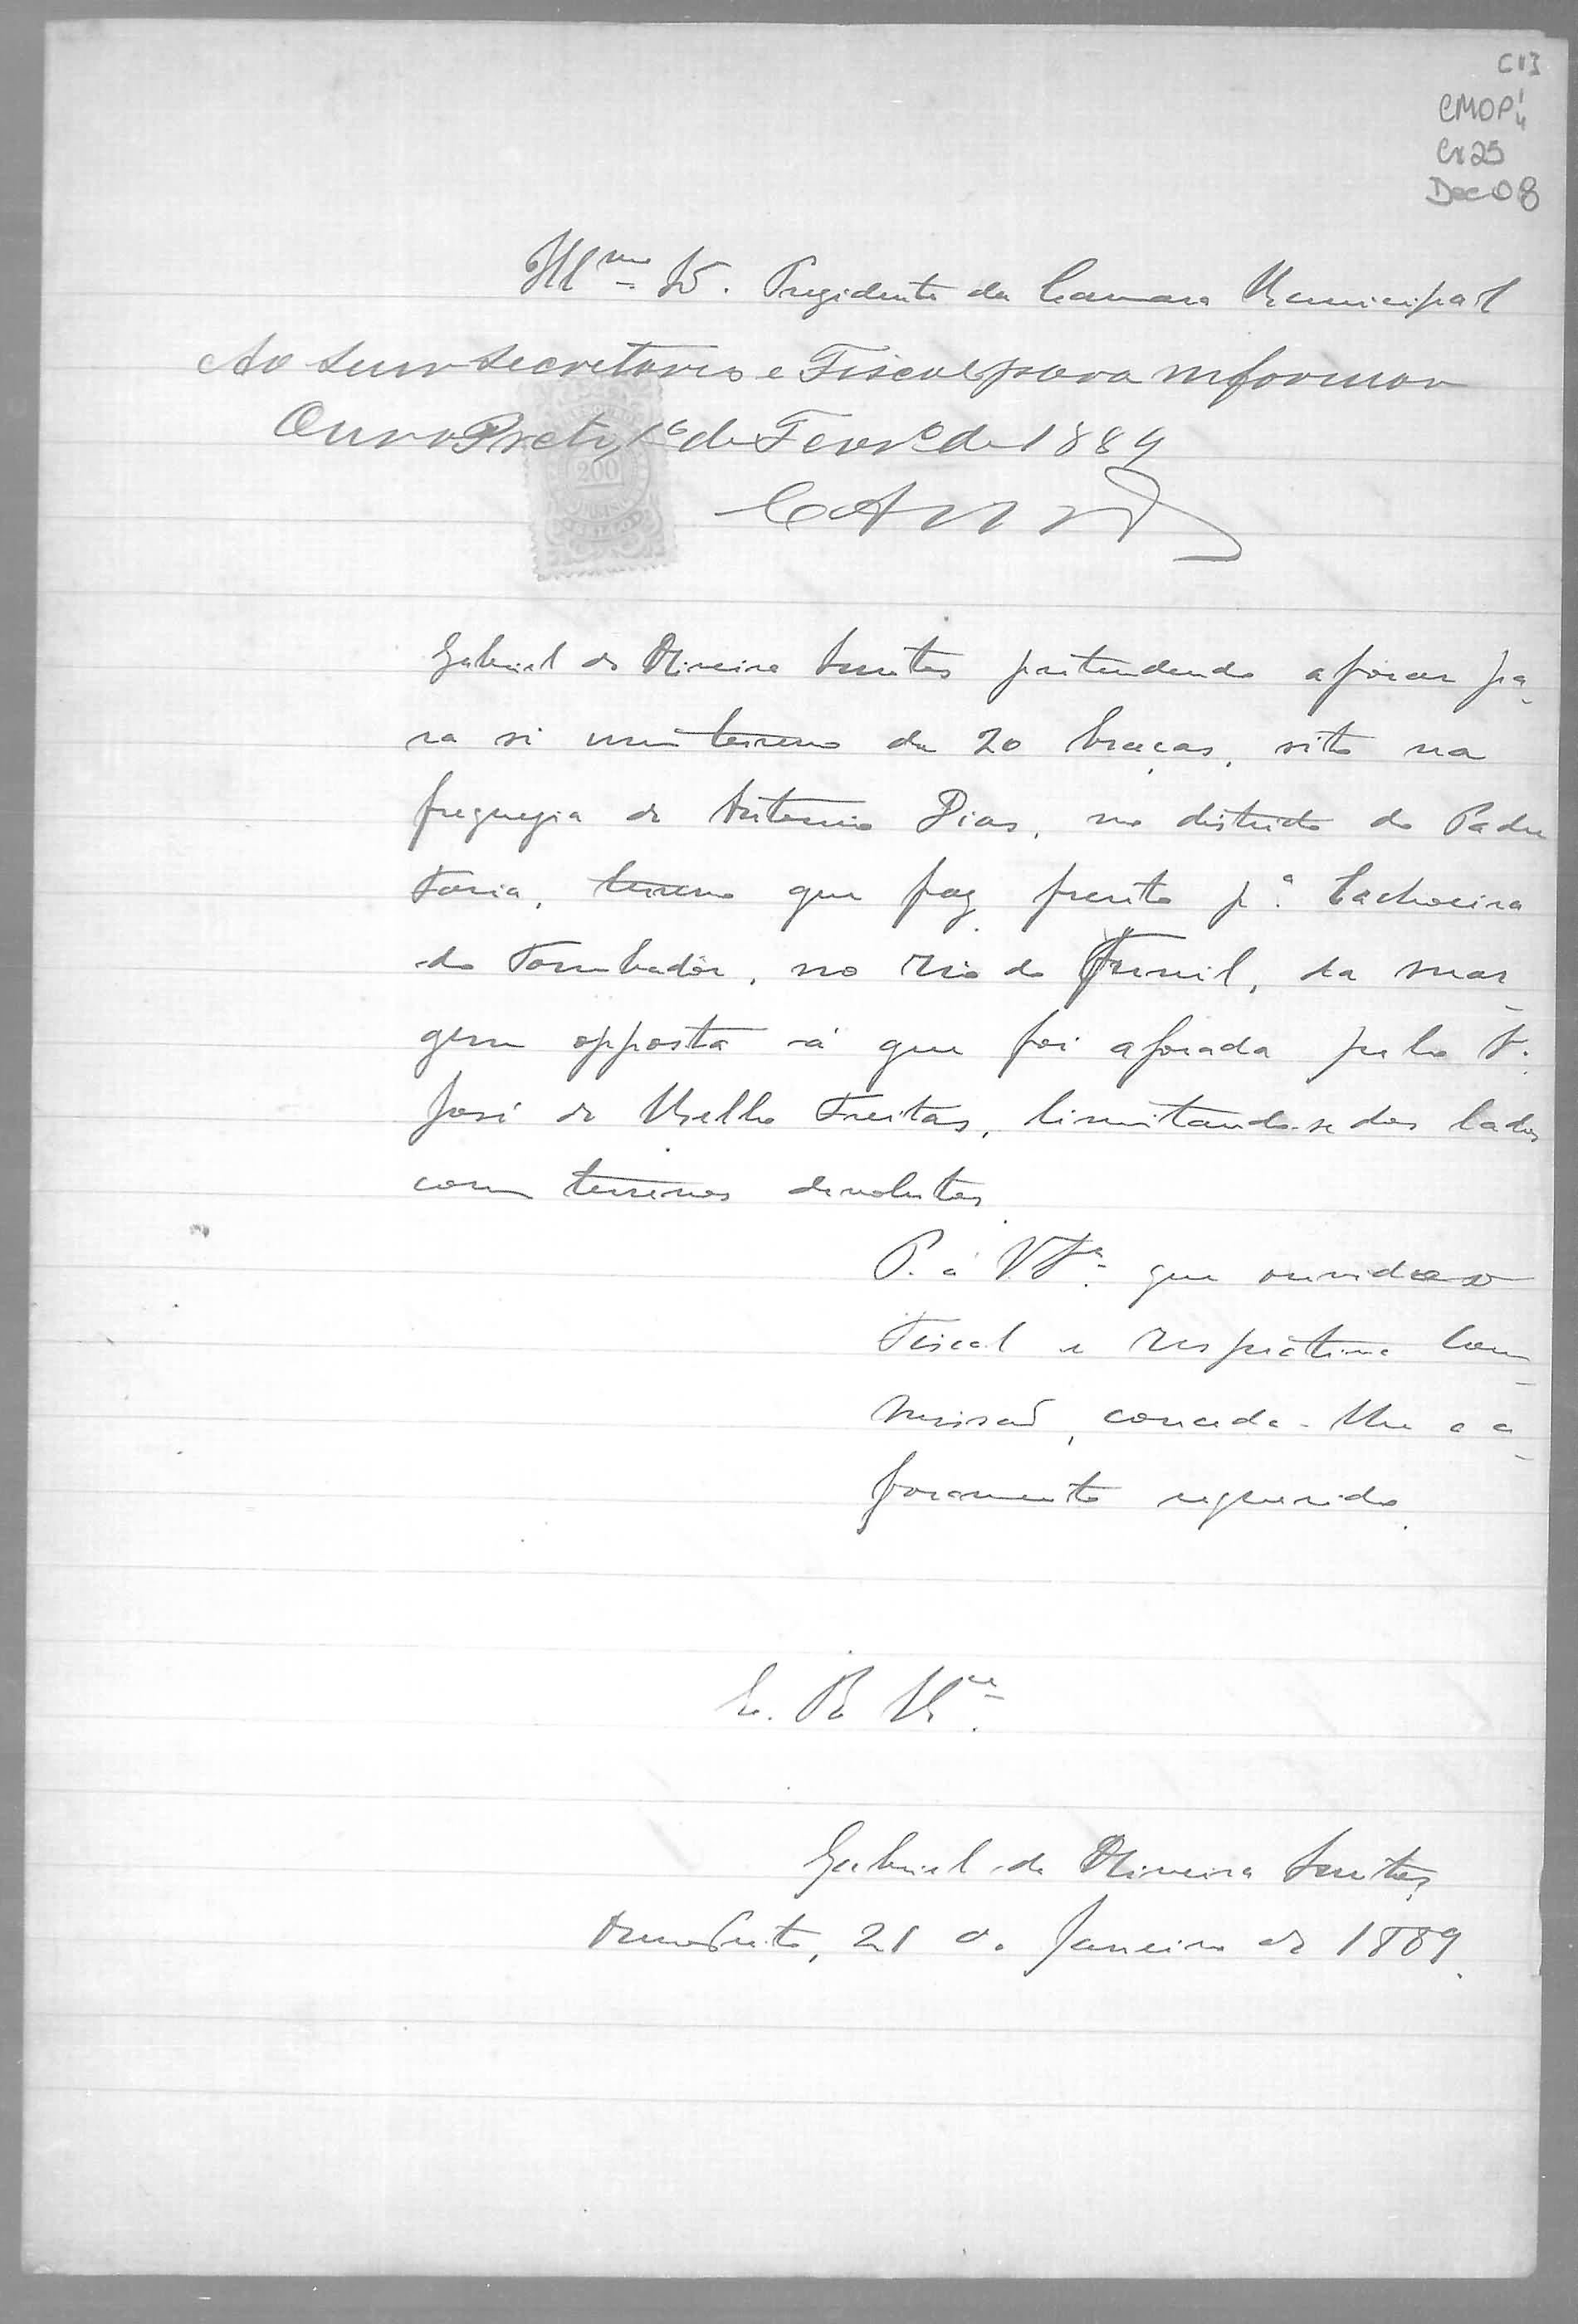 C13
CMOP 1/4
Cx 25
Doc 08
Illmo Sr. Prezidente da Camara Municipal
Ao Senr Secretario e Fiscal para informar
Ouro Preto 1º de Fevrº de 1889
200
Gabriel de Oliveira Santos pretendendo aforar pa-
ra si um terreno de 20 braças, sito na
freguezia de Antonio Dias, no districto do Padre
Faria, terreno que faz frente pª Cachoeira
do Tombador, no Rio do Funil, da mar-
gem opposta á que foi aforada pelo Sr.
José de Mello Freitas, limitando-se dos lados
com terrenos devolutos
P. a V. Sª que ouvido o
Fiscal e respectiva Com-
missaõ, conceda-lhe o a-
foramento requerido.
E. R. Mce
Gabriel de Oliveira Santos
Ouro Preto, 21 de Janeiro de 1889.